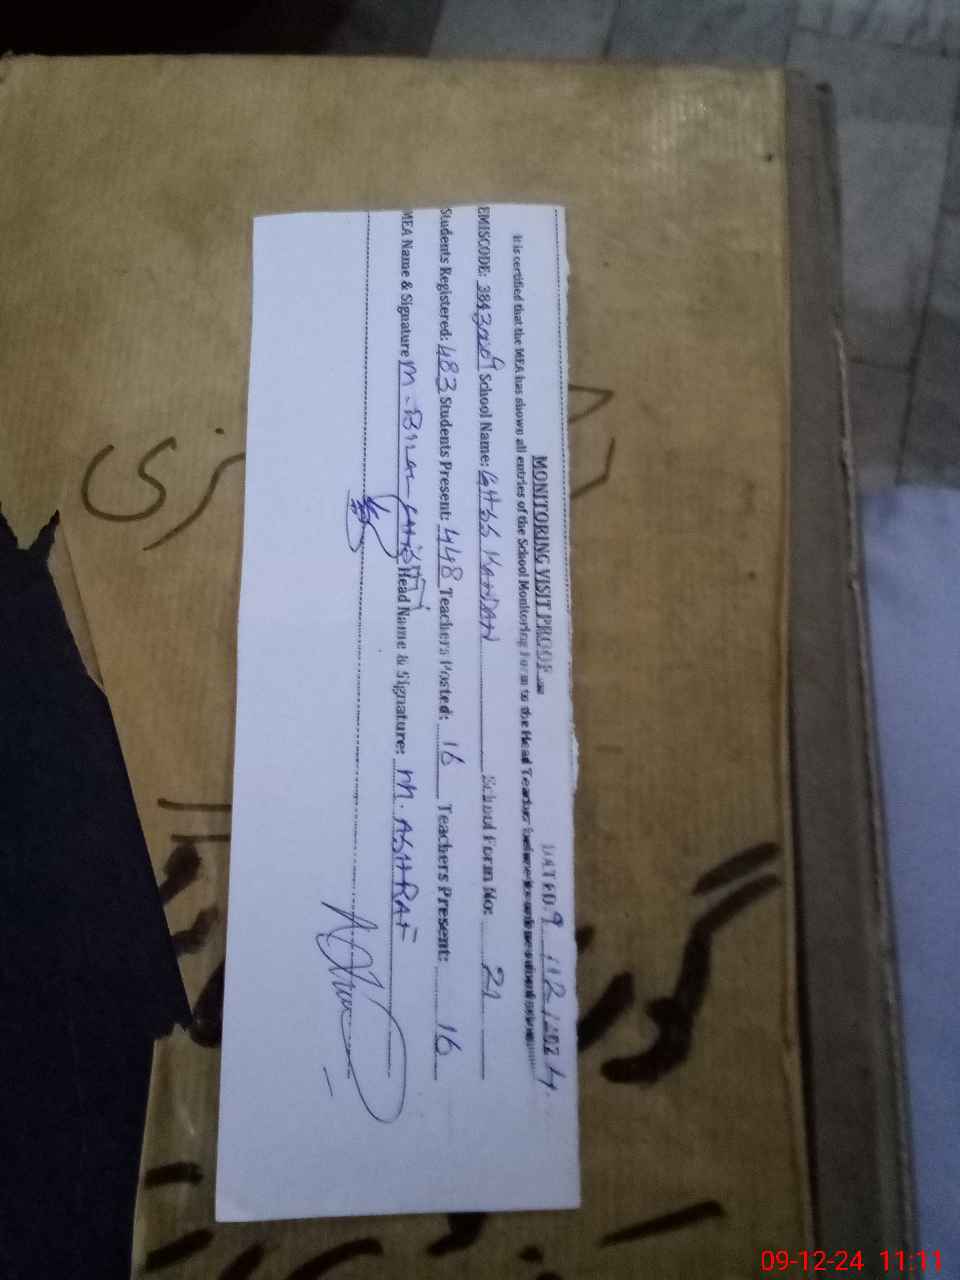 MONITORING VISIT PROOF
DATED: 9/12/2024
It is certified that the MEA has shown all entries of the School Monitoring Form to the Head Teacher before
EMISCODE: School Name: GHSS KANDAN School Form No: 21
Students Registered: 483 Students Present: 448 Teachers Posted: 16 Teachers Present: 16
MEA Name & Signature M. Head Name & Signature: M. ASHRAF
09-12-24 11:11